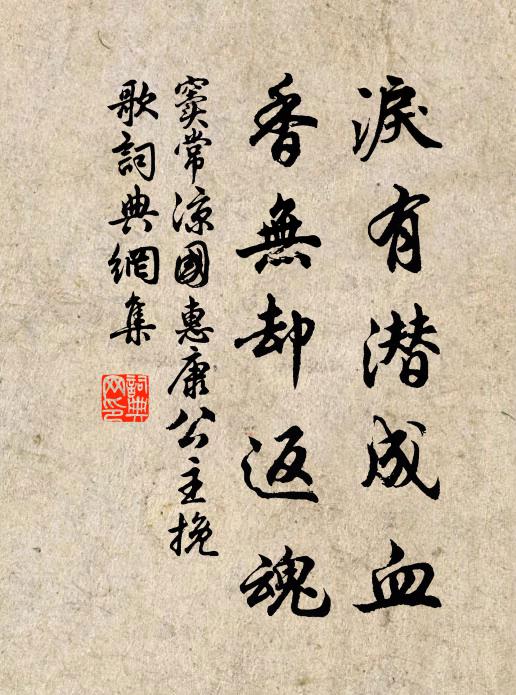 淚有潜成血
香無却返魂
竇常凉國惠康公主挽
歌詞典網集
詞典
网印